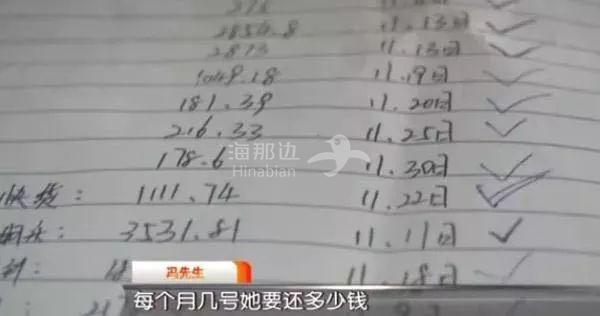 2854.8 11.13日
2813 11.13日
1049.18 11.19日
181.39 11.20日
216.33 11.25日
178.6 11.30日
快货: 1111.74 11.22日
3531.81 11.11日
11.18日
海那边
Hinabian
冯先生
每个月几号她要还多少钱